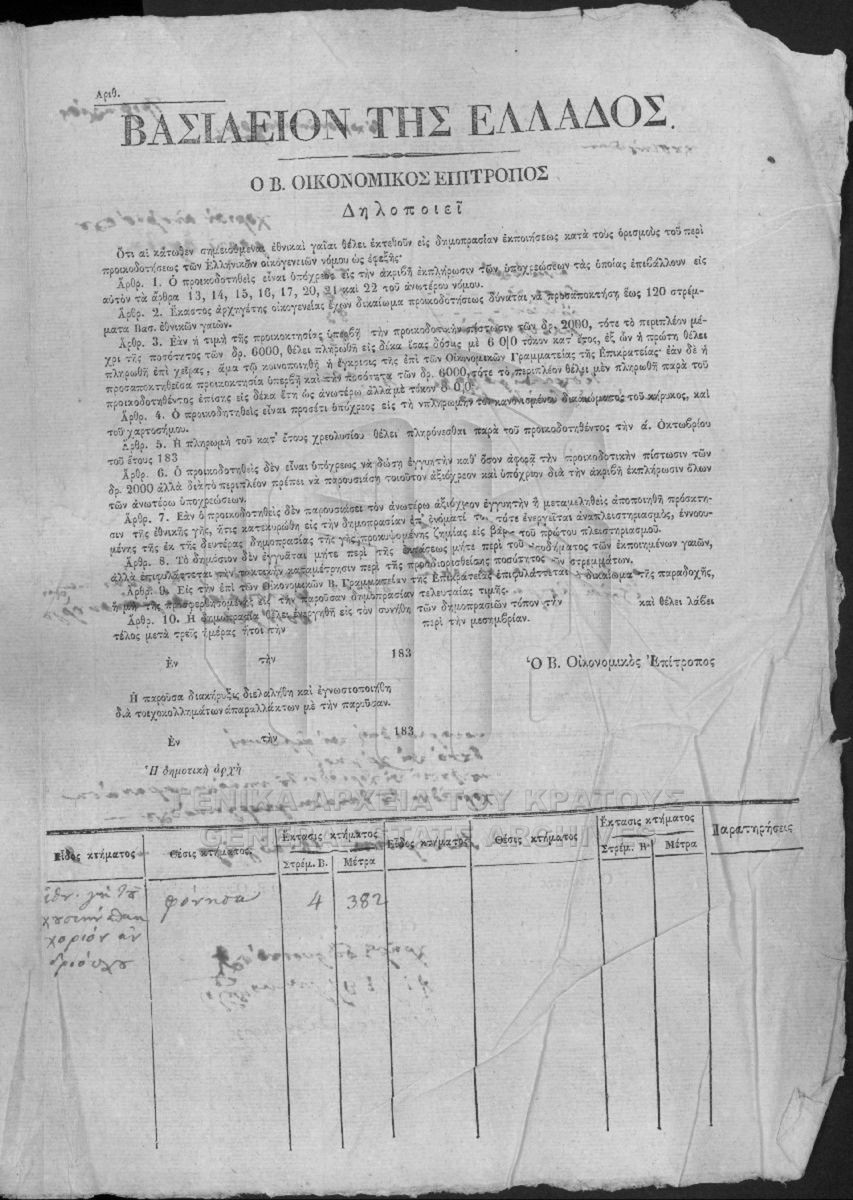 Αριθ.
ΒΑΣΙΛΕΙΟΝ ΤΗΣ ΕΛΛΑΔΟΣ.
Ο Β. ΟΙΚΟΝΟΜΙΚΟΣ ΕΠΙΤΡΟΠΟΣ
Δηλοποιεῖ
Ὅτι αἱ κάτωθεν σημειούμεναι ἐθνικαὶ γαῖαι θέλει ἐκτεθοῦν εἰς δημοπρασίαν ἐκποιήσεως κατὰ τοὺς ὁρισμοὺς τοῦ περὶ
προικοδοτήσεως τῶν Ἑλληνικῶν οἰκογενειῶν νόμου ὡς ἐφεξῆς·
Ἄρθρ. 1. Ὁ προικοδοτηθεὶς εἶναι ὑπόχρεως εἰς τὴν ἀκριβῆ ἐκπλήρωσιν τῶν ὑποχρεώσεων τὰς ὁποίας ἐπιβάλλουν εἰς
αὐτὸν τὰ ἄρθρα 13, 14, 15, 16, 17, 20, 21 καὶ 22 τοῦ ἀνωτέρω νόμου.
Ἄρθρ. 2. Ἕκαστος ἀρχηγέτης οἰκογενείας ἔχων δικαίωμα προικοδοτήσεως δύναται νὰ προσαποκτήσῃ ἕως 120 στρέμ-
ματα Βασ. ἐθνικῶν γαιῶν.
Ἄρθρ. 3. Ἐὰν ἡ τιμὴ τῆς προικοκτησίας ὑπερβῇ τὴν προικοδοτικὴν πίστωσιν τῶν δρ. 2000, τότε τὸ περιπλέον μέ-
χρι τῆς ποσότητος τῶν δρ. 6000, θέλει πληρωθῆ εἰς δέκα ἴσας δόσεις μὲ 6 0|0 τόκον κατ' ἔτος, ἐξ ὧν ἡ πρώτη θέλει
πληρωθῆ ἐπὶ χεῖρας, ἅμα τῷ κοινοποιηθῇ ἡ ἔγκρισις τῆς ἐπὶ τῶν Οἰκονομικῶν Γραμματείας τῆς Ἐπικρατείας· ἐὰν δὲ ἡ
προσαποκτηθεῖσα προικοκτησία ὑπερβῇ καὶ τὴν ποσότητα τῶν δρ. 6000, τότε τὸ περιπλέον θέλει μὲν πληρωθῆ παρὰ τοῦ
προικοδοτηθέντος ἐπίσης εἰς δέκα ἔτη ὡς ἀνωτέρω ἀλλὰ μὲ τόκον 8 0|0.
Ἄρθρ. 4. Ὁ προικοδοτηθεὶς εἶναι προσέτι ὑπόχρεος εἰς τὴ νπληρωμὴν τοῦ κανονισμένου δικαιώματος τοῦ κήρυκος, καὶ
τοῦ χαρτοσήμου.
Ἄρθρ. 5. Ἡ πληρωμὴ τοῦ κατ' ἔτους χρεολυσίου θέλει πληρόνεσθαι παρὰ τοῦ προικοδοτηθέντος τὴν ά. Ὀκτωβρίου
τοῦ ἔτους 183
Ἄρθρ. 6. Ὁ προικοδοτηθεὶς δὲν εἶναι ὑπόχρεως νὰ δώσῃ ἐγγυητὴν καθ' ὅσον ἀφορᾷ τὴν προικοδοτικὴν πίστωσιν τῶν
δρ. 2000 ἀλλὰ διὰ τὸ περιπλέον πρέπει νὰ παρουσιάσῃ τοιοῦτον ἀξιόχρεον καὶ ὑπόχριον διὰ τὴν ἀκριβῆ ἐκπλήρωσιν ὅλων
τῶν ἀνωτέρω ὑποχρεώσεων.
Ἄρθρ. 7. Ἐὰν ὁ προικοδοτηθεὶς δὲν παρουσιάσει τὸν ἀνωτέρω ἀξιόχρεον ἐγγυητὴν ἢ μεταμεληθεὶς ἀποποιηθῇ πρόσκτη-
σιν τῆς ἐθνικῆς γῆς, ἥτις κατεκυρώθη εἰς τὴν δημοπρασίαν ἐπ' ὀνόματί του τότε ἐνεργεῖται ἀναπλειστηριασμὸς, ἐννοου-
μένης τῆς ἐκ τῆς δευτέρας δημοπρασίας τῆς γῆς προκυψομένης ζημίας εἰς βάρος τοῦ πρώτου πλειστηριασμοῦ.
Ἄρθρ. 8. Τὸ δημόσιον δὲν ἐγγυᾶται μήτε περὶ τῆς ἐκτάσεως μήτε περὶ τοῦ εἰσοδήματος τῶν ἐκποιημένων γαιῶν,
ἀλλὰ ἐπιφυλάττεται τὴν τακτικὴν καταμέτρησιν περὶ τῆς προσδιορισθείσης ποσότητος τῶν στρεμμάτων.
Ἄρθρ. 9. Εἰς τὴν ἐπὶ τῶν Οἰκονομικῶν Β. Γραμματείαν τῆς Ἐπικρατείας ἐπιφυλάττεται δικαίωμα τῆς παραδοχῆς,
ἢ μὴ τῆς προσφερθησομένης εἰς τὴν παροῦσαν δημοπρασίαν τελευταίας τιμῆς.
Ἄρθρ. 10. Ἡ δημοπρασία θέλει ἐνεργηθῆ εἰς τὸν συνήθη τῶν δημοπρασιῶν τόπον τὴν καὶ θέλει λάβει
τέλος μετὰ τρεῖς ἡμέρας ἤτοι τὴν περὶ τὴν μεσημβρίαν.
Ἐν τὴν 183
Ὁ Β. Οἰκονομικὸς Ἐπίτροπος
Ἡ παροῦσα διακήρυξις διελαλήθη καὶ ἐγνωστοποιήθη
διὰ τοιχοκολλημάτων ἀπαραλλάκτων μὲ τὴν παροῦσαν.
Ἐν τὴν 183
Ἡ δημοτικὴ ἀρχὴ
ΓΕΝΙΚΑ ΑΡΧΕΙΑ ΤΟΥ ΚΡΑΤΟΥΣ
GENERAL STATE ARCHIVES
Εἶδος κτήματος Θέσις κτήματος Ἔκτασις κτήματος Εἶδος κτήματος Θέσις κτήματος Ἔκτασις κτήματος Παρατηρήσεις
Στρέμ. Β. Μέτρα Στρέμ. Β Μέτρα
φόνησα 4 382
χοριόν